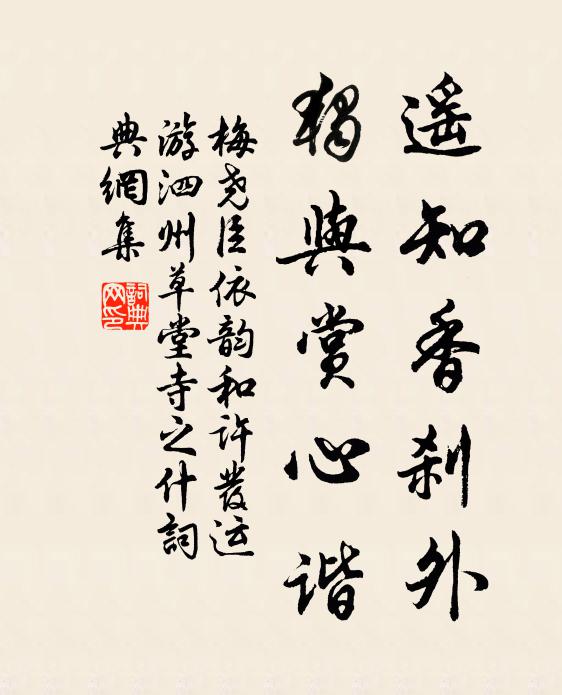 遥知香刹外
獨與賞心谐
梅尧臣依韵和许發运
游泗州草堂寺之什詞
典網集
詞典网印